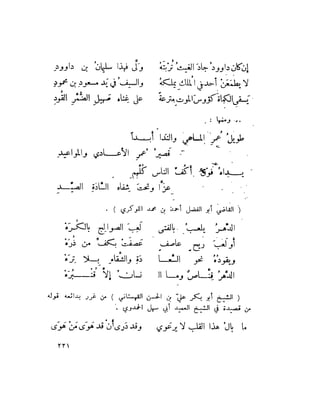 إن كان داوود جاد الغيث تربته وولى فهذا سليمان بن داوود
لا يطمعن أحد في الملك يملكه والسيف في يد مسعود بن محمود
يسقي الكماة كؤوس الموت مترعة على غناء صهيل الضمر القود
.. ومنها :
طويل عمر المساعي والندا أبداً
قصير عمر الأعادي والمواعيد
يداه فوق أكف الناس كلهم
عزاً وتحت شفاه السادة الصيد
( القاضي أبو الفضل أحمد بن محمد اللوكري ) .
الدهر يلعب بالفتى لعب الصوالج بالكره
أو لعب ريح عاصف عصفت بكف من ذره
ويقوده نحو السعادة والشقاء بلا بره
الدهر قناص وما الا نسان إلا قنبره
( الشيخ أبو بكر علي بن الحسن القهستاني ) من غرر بدائعه قوله
من قصيدة في الشيخ العميد أبي سهل الحمدوي .
ما بال هذا القلب لا يرعوي وقد درى أن قد هوى من هوى
٢٣١